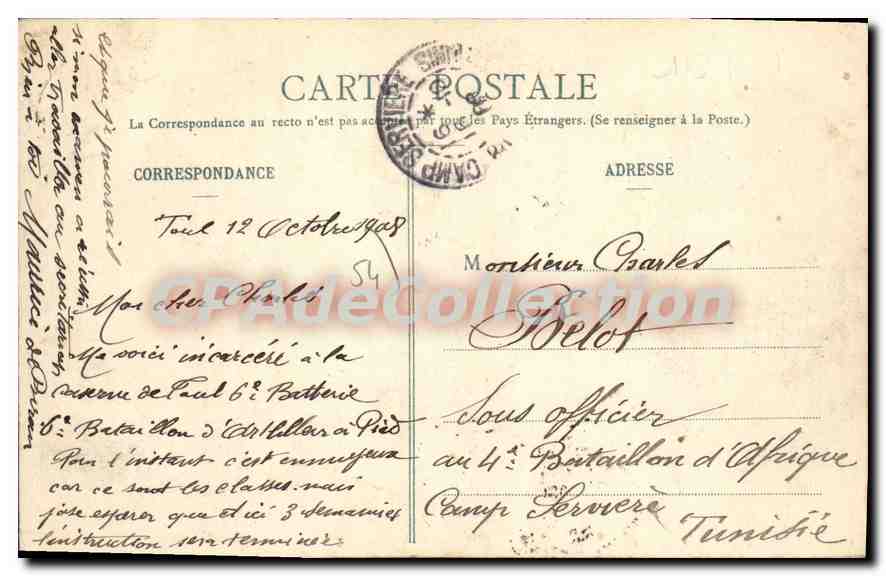 CARTE POSTALE
La Correspondance au recto n'est pas acceptée par tous les Pays Étrangers. (Se renseigner à la Poste.)
CORRESPONDANCE
Toul 12 Octobre 1908
54
Mon cher Charles
Me voici incarcéré à la
caserne de Toul 6e Batterie
6e Bataillon d'Artillerie à Pied
Pour l'instant c'est ennuyeux
car ce sont les classes. mais
j'ose espérer que d'ici 3 semaines
l'instruction sera terminée
et que je pourrais
si mon examen a réussi
aller travailler au secrétariat
Bien à toi Maurice de
ADRESSE
Monsieur Charles
Belot
Sous officier
au 4e Bataillon d'Afrique
Camp Servière
Tunisie
CAMP SERVIERE
CPAdeCollection